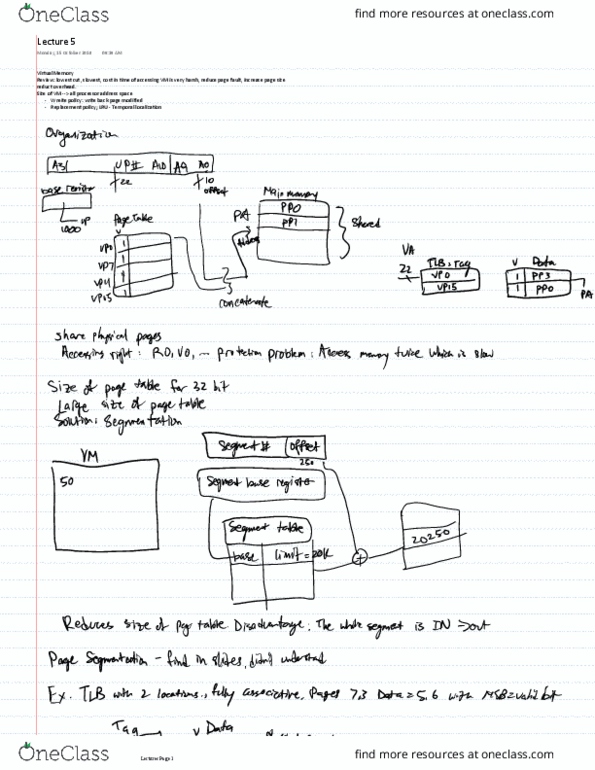 OneClass
find more resources at oneclass.com
Lecture 5
Virtual Memory
Review: lowest cut, slowest, cost in time of accessing VM is very harsh, reduce page fault, increase page size
reduct overhead.
Size of VM --> all processor address space
- Write policy: write back page modified
- Replacement policy; LRU - Temporal localization
Organization
A31 VP# A10 A9 A0
22 10
offset
base register
VP
1000
Page table
V
VP0 1
VP7 1
VP4 1
VP15 1
Main memory
PP0
PP1
PA
Shared
concatenate
VA
22
TLB: Tag
VP0
VP15
V Data
1 PP3
1 PP0
PA
share physical pages
Accessing right: RO, VO, ... Protection problem: Access memory twice which is slow
Size of page table for 32 bit
Large size of page table
Solution: Segmentation
VM
50
Segment # offset
250
Segment base register
Segment table
base limit = 20k
+
20250
Reduces size of page table Disadvantage: The whole segment is IN > out
Page Segmentation - find in slides, didn't understand
Ex. TLB with 2 locations., fully associative, Pages 7,3 Data = 5,6 with MSB = valid bit
Tag V Data
OneClass
Lecture Page 1
find more resources at oneclass.com